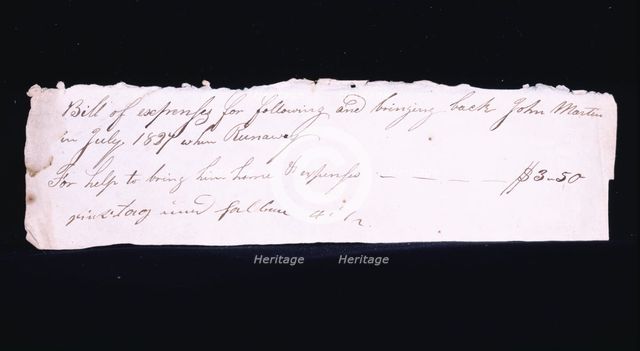 Bill of expenses for following and bringing back John Martin
in July 1827 when Runaway
For help to bring him home & expenses - - - - $3-50
Heritage Heritage